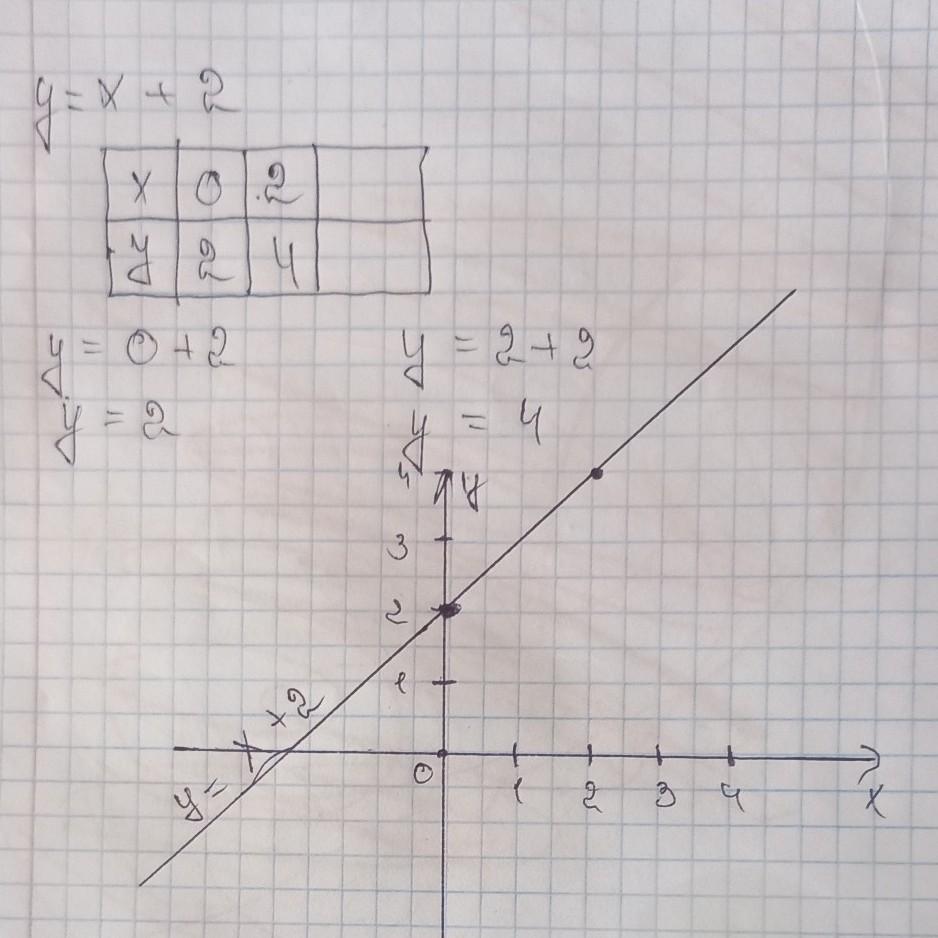 y = x + 2
x 0 2
y 2 4
y = 0 + 2
y = 2 + 2
y = 2
y = 4
4 y
3
2
1
y = x + 2
0 1 2 3 4 x